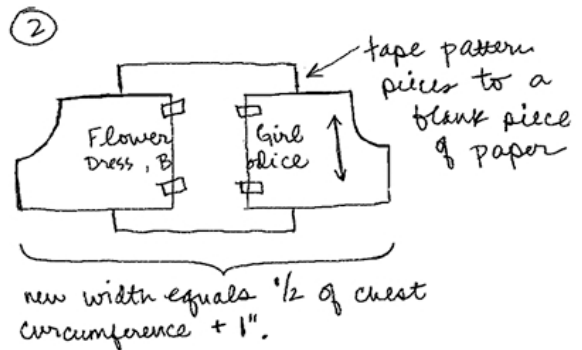 2
tape pattern
pieces to a
blank piece
of paper
Flower Girl
Dress, Bodice
new width equals 1/2 of chest
circumference + 1".